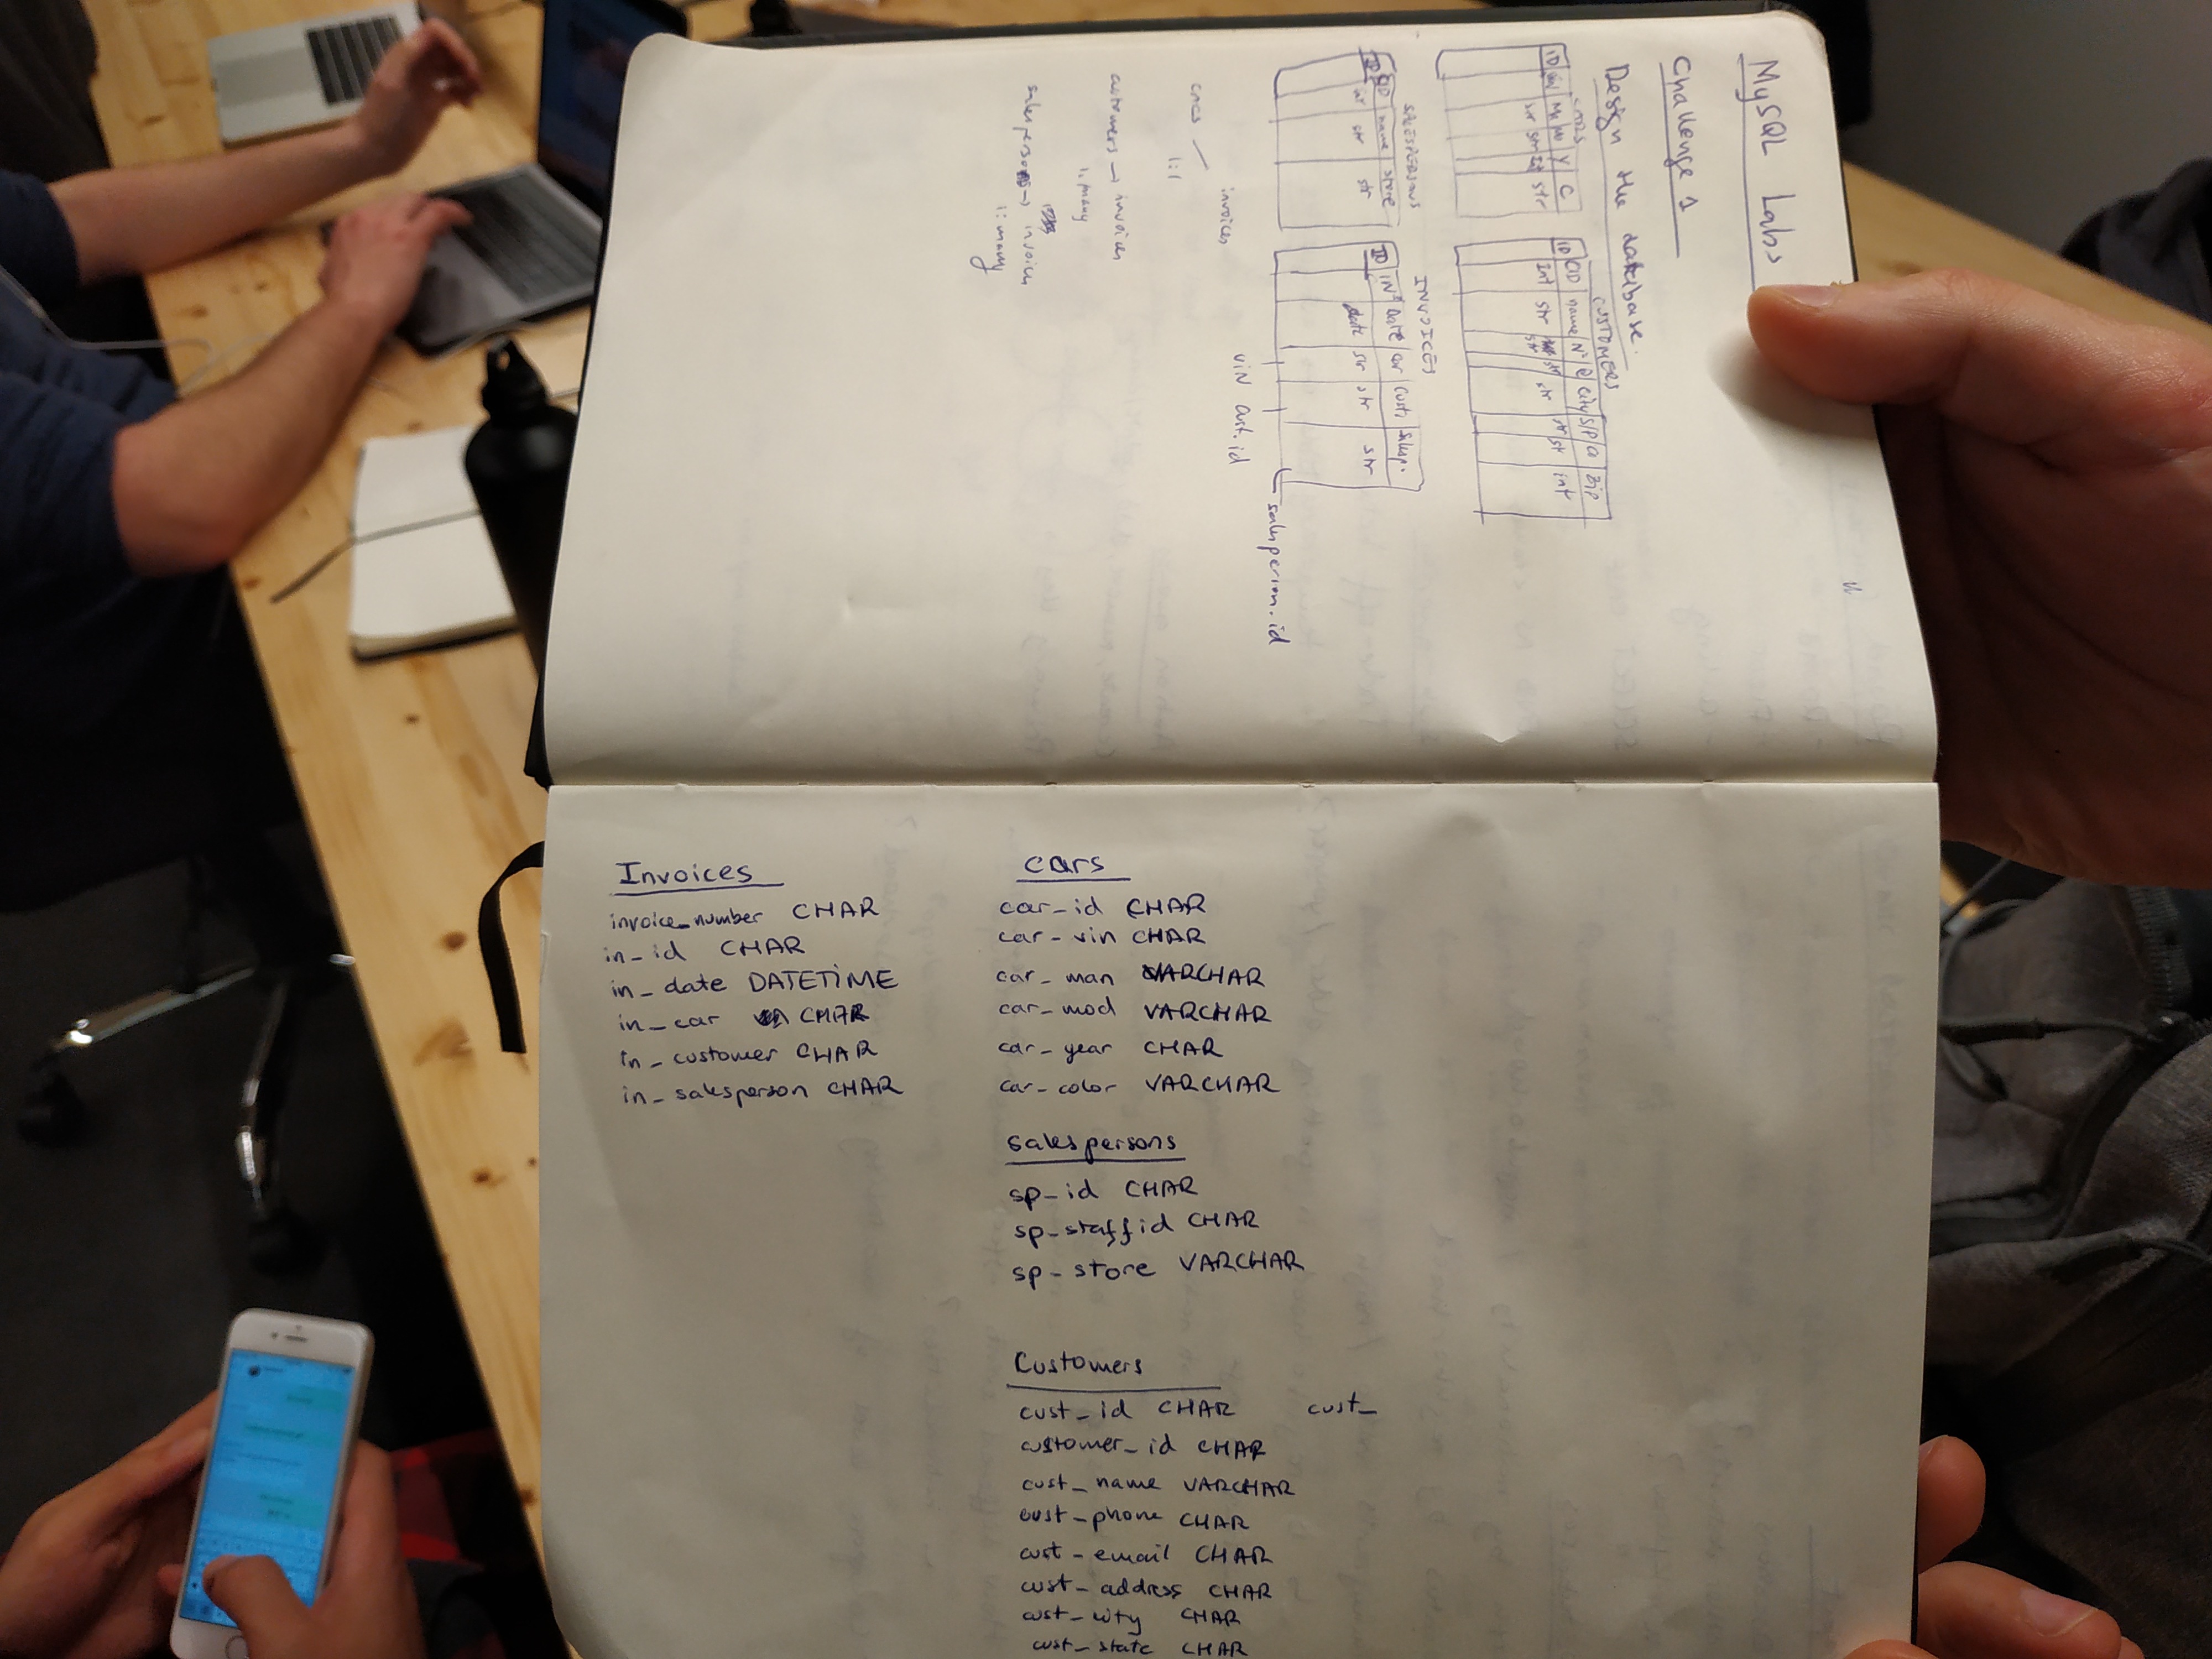 MySQL Labs
Challenge 1
Design the database.
CARS
ID
str str int str
CUSTOMERS
ID CID name Nº @ city S/P Co Zip
Int str str str str str st int
SALESPERSONS
ID name store
str str
INVOICES
ID iNº Date car Cust. Salesp.
date str str str
VIN cust.id
salesperson.id
invoices
cars
1:1
customers → invoices
1:many
salespersons → invoices
1:many
Invoices
invoice_number CHAR
in_id CHAR
in_date DATETIME
in_car CHAR
in_customer CHAR
in_salesperson CHAR
cars
car_id CHAR
car_vin CHAR
car_man VARCHAR
car_mod VARCHAR
car_year CHAR
car_color VARCHAR
salespersons
sp_id CHAR
sp_staffid CHAR
sp_store VARCHAR
Customers
cust_id CHAR cust_
customer_id CHAR
cust_name VARCHAR
cust_phone CHAR
cust_email CHAR
cust_address CHAR
cust_city CHAR
cust_state CHAR